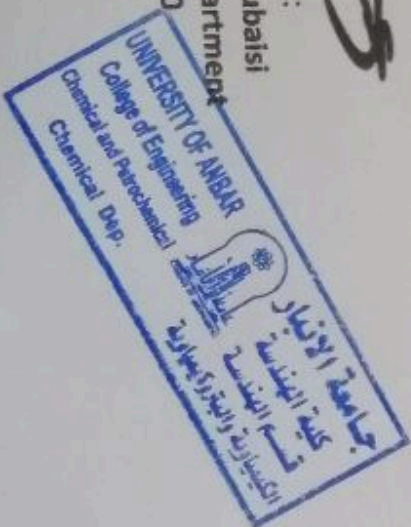 :
ubaisi
artment
UNIVERSITY OF ANBAR
College of Engineering
Chemical and Petrochemical
Chemical Dep.
جامعة الانبار
كلية الهندسة
قسم الهندسة
الكيمياوية والبتروكيمياوية